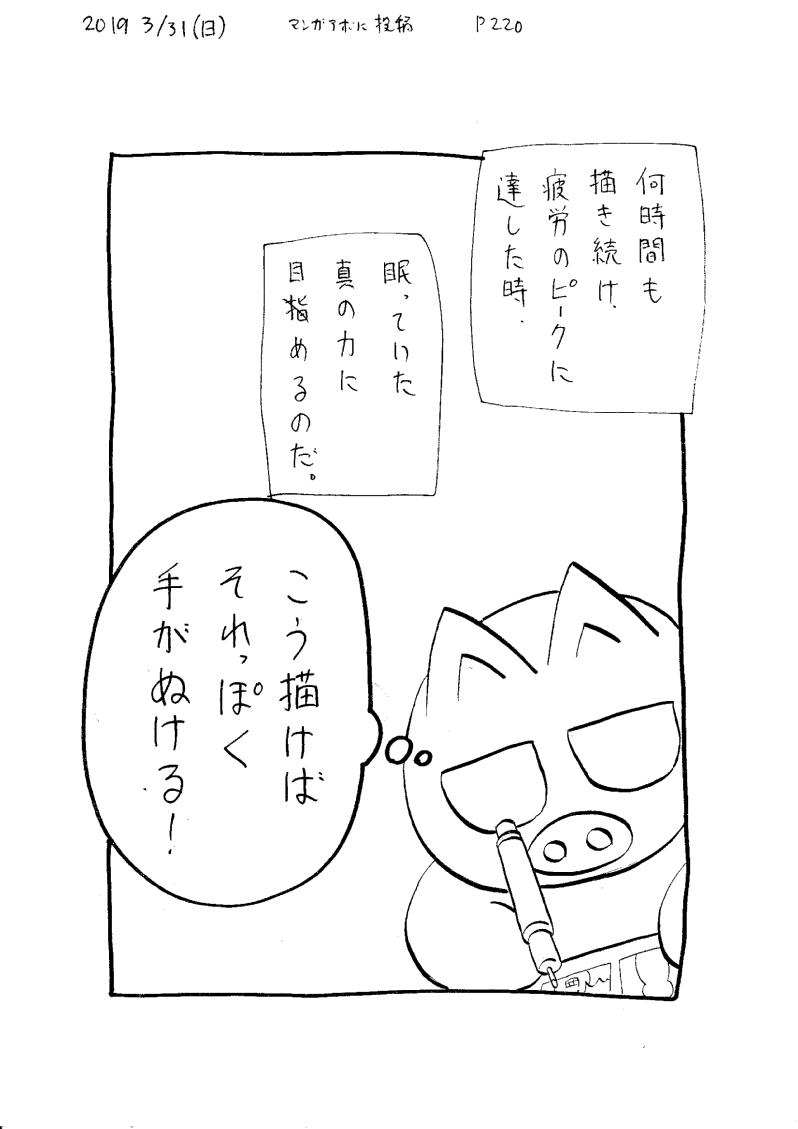 2019 3/31(日)　マンガラボに投稿　P220
何時間も
描き続け、
疲労のピークに
達した時、
眠っていた
真の力に
目指めるのだ。
こう描けば
それっぽく
手がぬける!